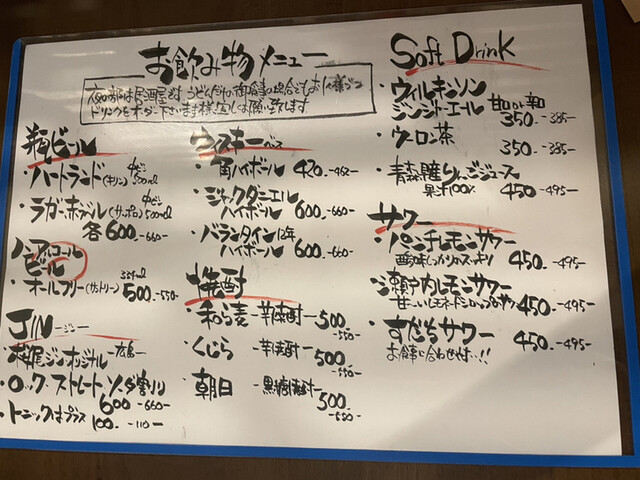 お飲み物メニュー
夜の部は居酒屋です うどんだけの御食事の場合もお1人様1つ
ドリンクをオーダー下さいます様宜しくお願い致します
瓶ビール
・ハートランド(キリン) 中ビン500ml
・ラガー赤ラベル(サッポロ) 中ビン500ml
各600.-660-
ノンアルコール
ビール
・オールフリー(サントリー) 334ml 500.-550-
JIN -ジン-
・桜尾ジンオリジナル -広島-
・ロック ストレート ソーダ割り
600-660-
・トニックはプラス 100.-110-
ウィスキーベース
・角ハイボール 420.-462-
・ジャックダニエル
ハイボール 600.-660-
・バランタイン12年
ハイボール 600.-660-
焼酎
・和ら麦 -麦焼酎- 500
-550-
・くじら -芋焼酎- 500
-550-
・朝日 -黒糖焼酎- 500
-550-
Soft Drink
・ウィルキンソン
ジンジャーエール 甘口or辛口
350.-385-
・ウーロン茶
350.-385-
・青森産りんごジュース
果汁100% 450-495-
サワー
・パンチレモンサワー
酸味しっかり 450.-495-
・瀬戸内レモンサワー
甘〜いレモネードシロップのサワー 450-495-
・すだちサワー 450.-495-
お食事に合わせて!!